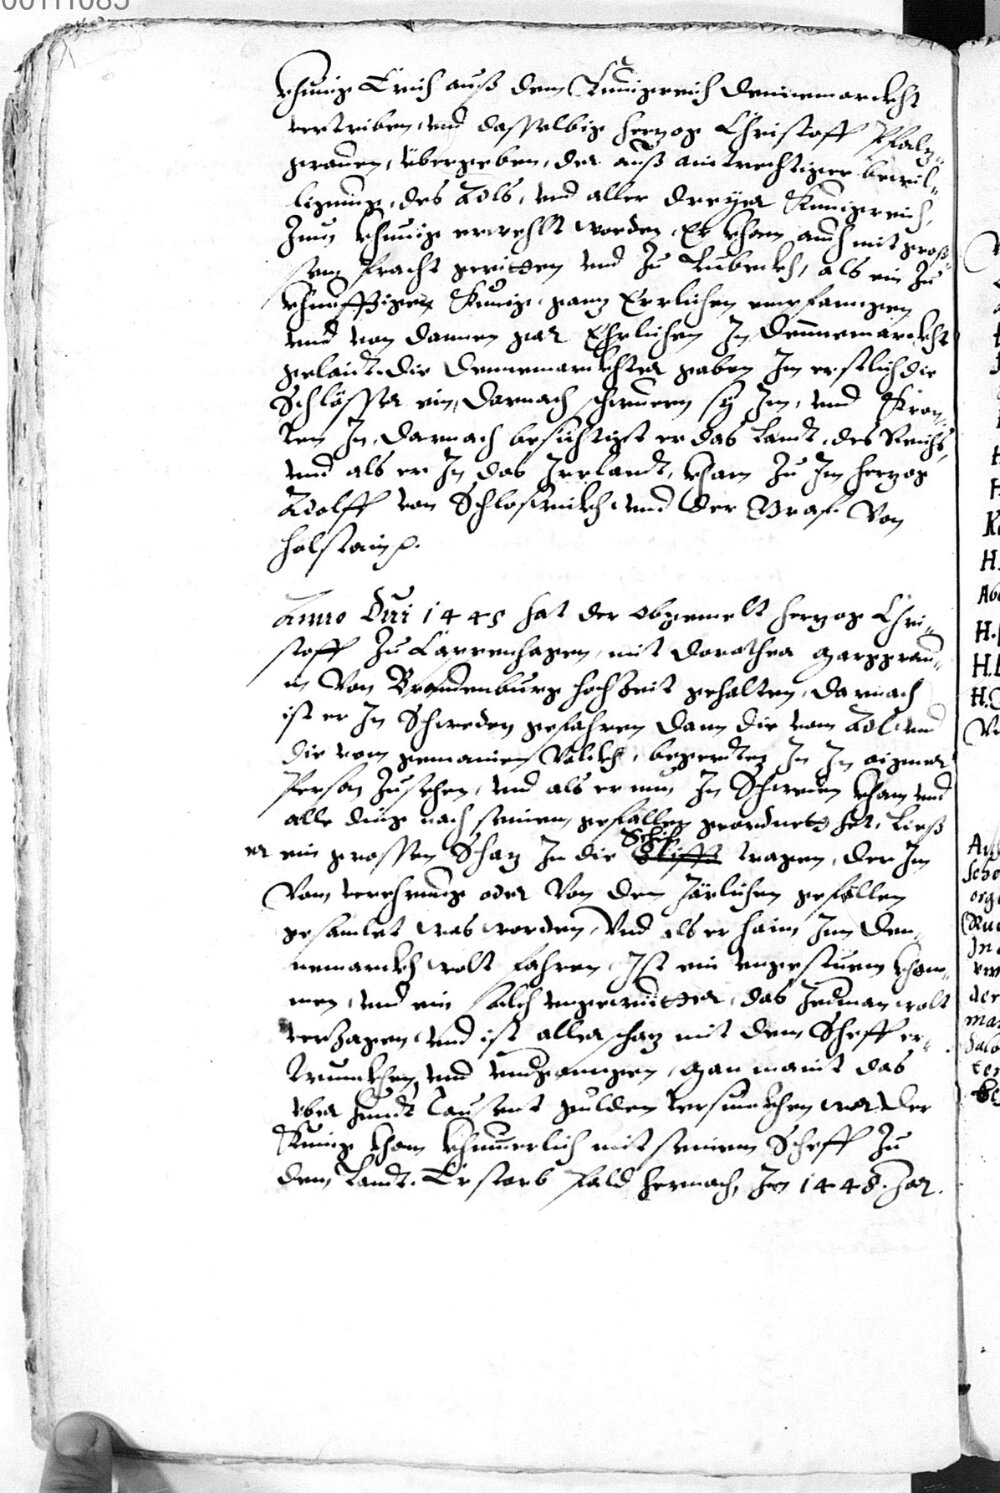 00111085
khunig Erich auß dem Kunigreich Dennemarckht
vertriben, und dasselbig herzog Christoff Pfalz-
graven, übergeben, der auß aintrechtiger bewil-
ligung, des Adls, und aller dreyer Kunigreich,
Zum khunig erwehlt worden, Er kham auch mit gros-
sem pracht geritten und zu Lubeckh, als ein zu
khunfftigen Kunig, ganz Errlichen empfanngen
und von dannen gar Ehrlichen In Dennemarckht
gelaidt. Die Dennemarckhter gaben Im erstlich die
Schlösser ein, darnach schwuern sy Im, und Krön-
ten In, Darnach besichtigt er das Landt, des Reichs,
und als er In das Irrlandt, kham zu Im herzog
Adolff von Schleswickh und der Graf Von
Holstain
Anno Dni 1445 hat der obgemelt herzog Chri-
stoff zu Coppenhagen, mit Dorothea Marggrau-
in Von Brandenburg hochzeit gehalten, Darnach
ist er In Schweden gefahren Dann die vom Adl und
die vom gemainen Volckh, begerdten In In aigner
Person zusehen, und als er nun In Schweden kham und
alle ding nach seinem gefallen geordnet het, ließ
er ein grossen Schaz In die Schif tragen, der Im
Von verehrung oder Von den Järlichen gefällen
gesamlet was worden, Und als er haim Inn Den-
nemarckh wolt fahren, Ist ein ungestuem khom-
men, und ein solch ungewitter, das Jederman wolt
verzagen, und ist aller schaz mit dem Scheff er-
trunckhen, und undganngen, man maint das
uber hundt Tausent gulden versunckhen war, Der
Kunig kham khumerlich mit seinem Scheff zu
dem Landt. Er starb bald hernach, Im 1448. Jar.